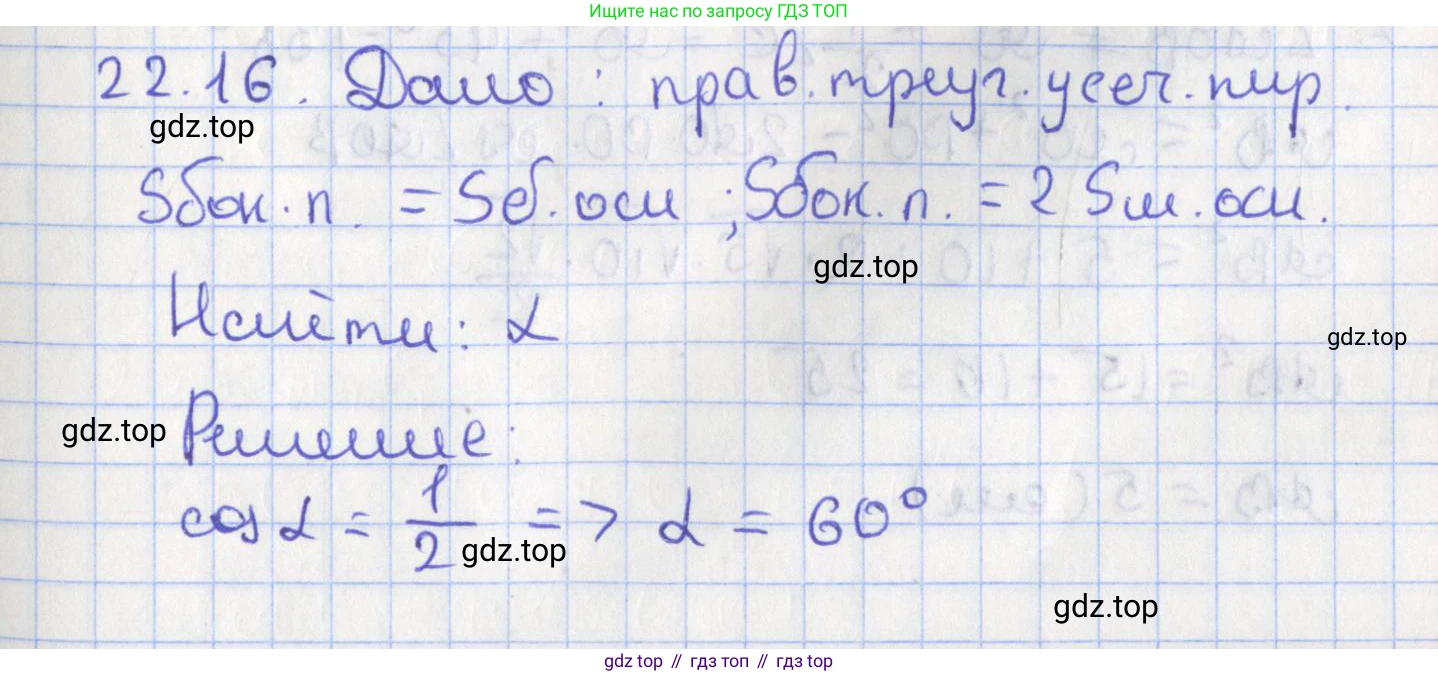 Ищите нас по запросу ГДЗ ТОП
22.16. Дано: прав. треуг. усеч. пир.
gdz.top
Sбок. п. = Sб. осн ; Sбок. п. = 2 Sм. осн.
gdz.top
Найти: α
gdz.top
gdz.top
Решение:
cos α = 1/2 => α = 60°
gdz.top
gdz.top
gdz top // гдз топ // gdz top